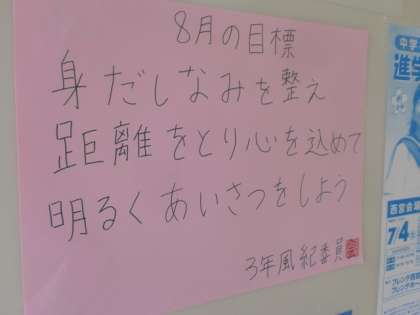 8月の目標
身だしなみを整え
距離をとり心を込めて
明るくあいさつをしよう
3年風紀委員
中学
進
西宮会場
7/4
プレンテ西宮